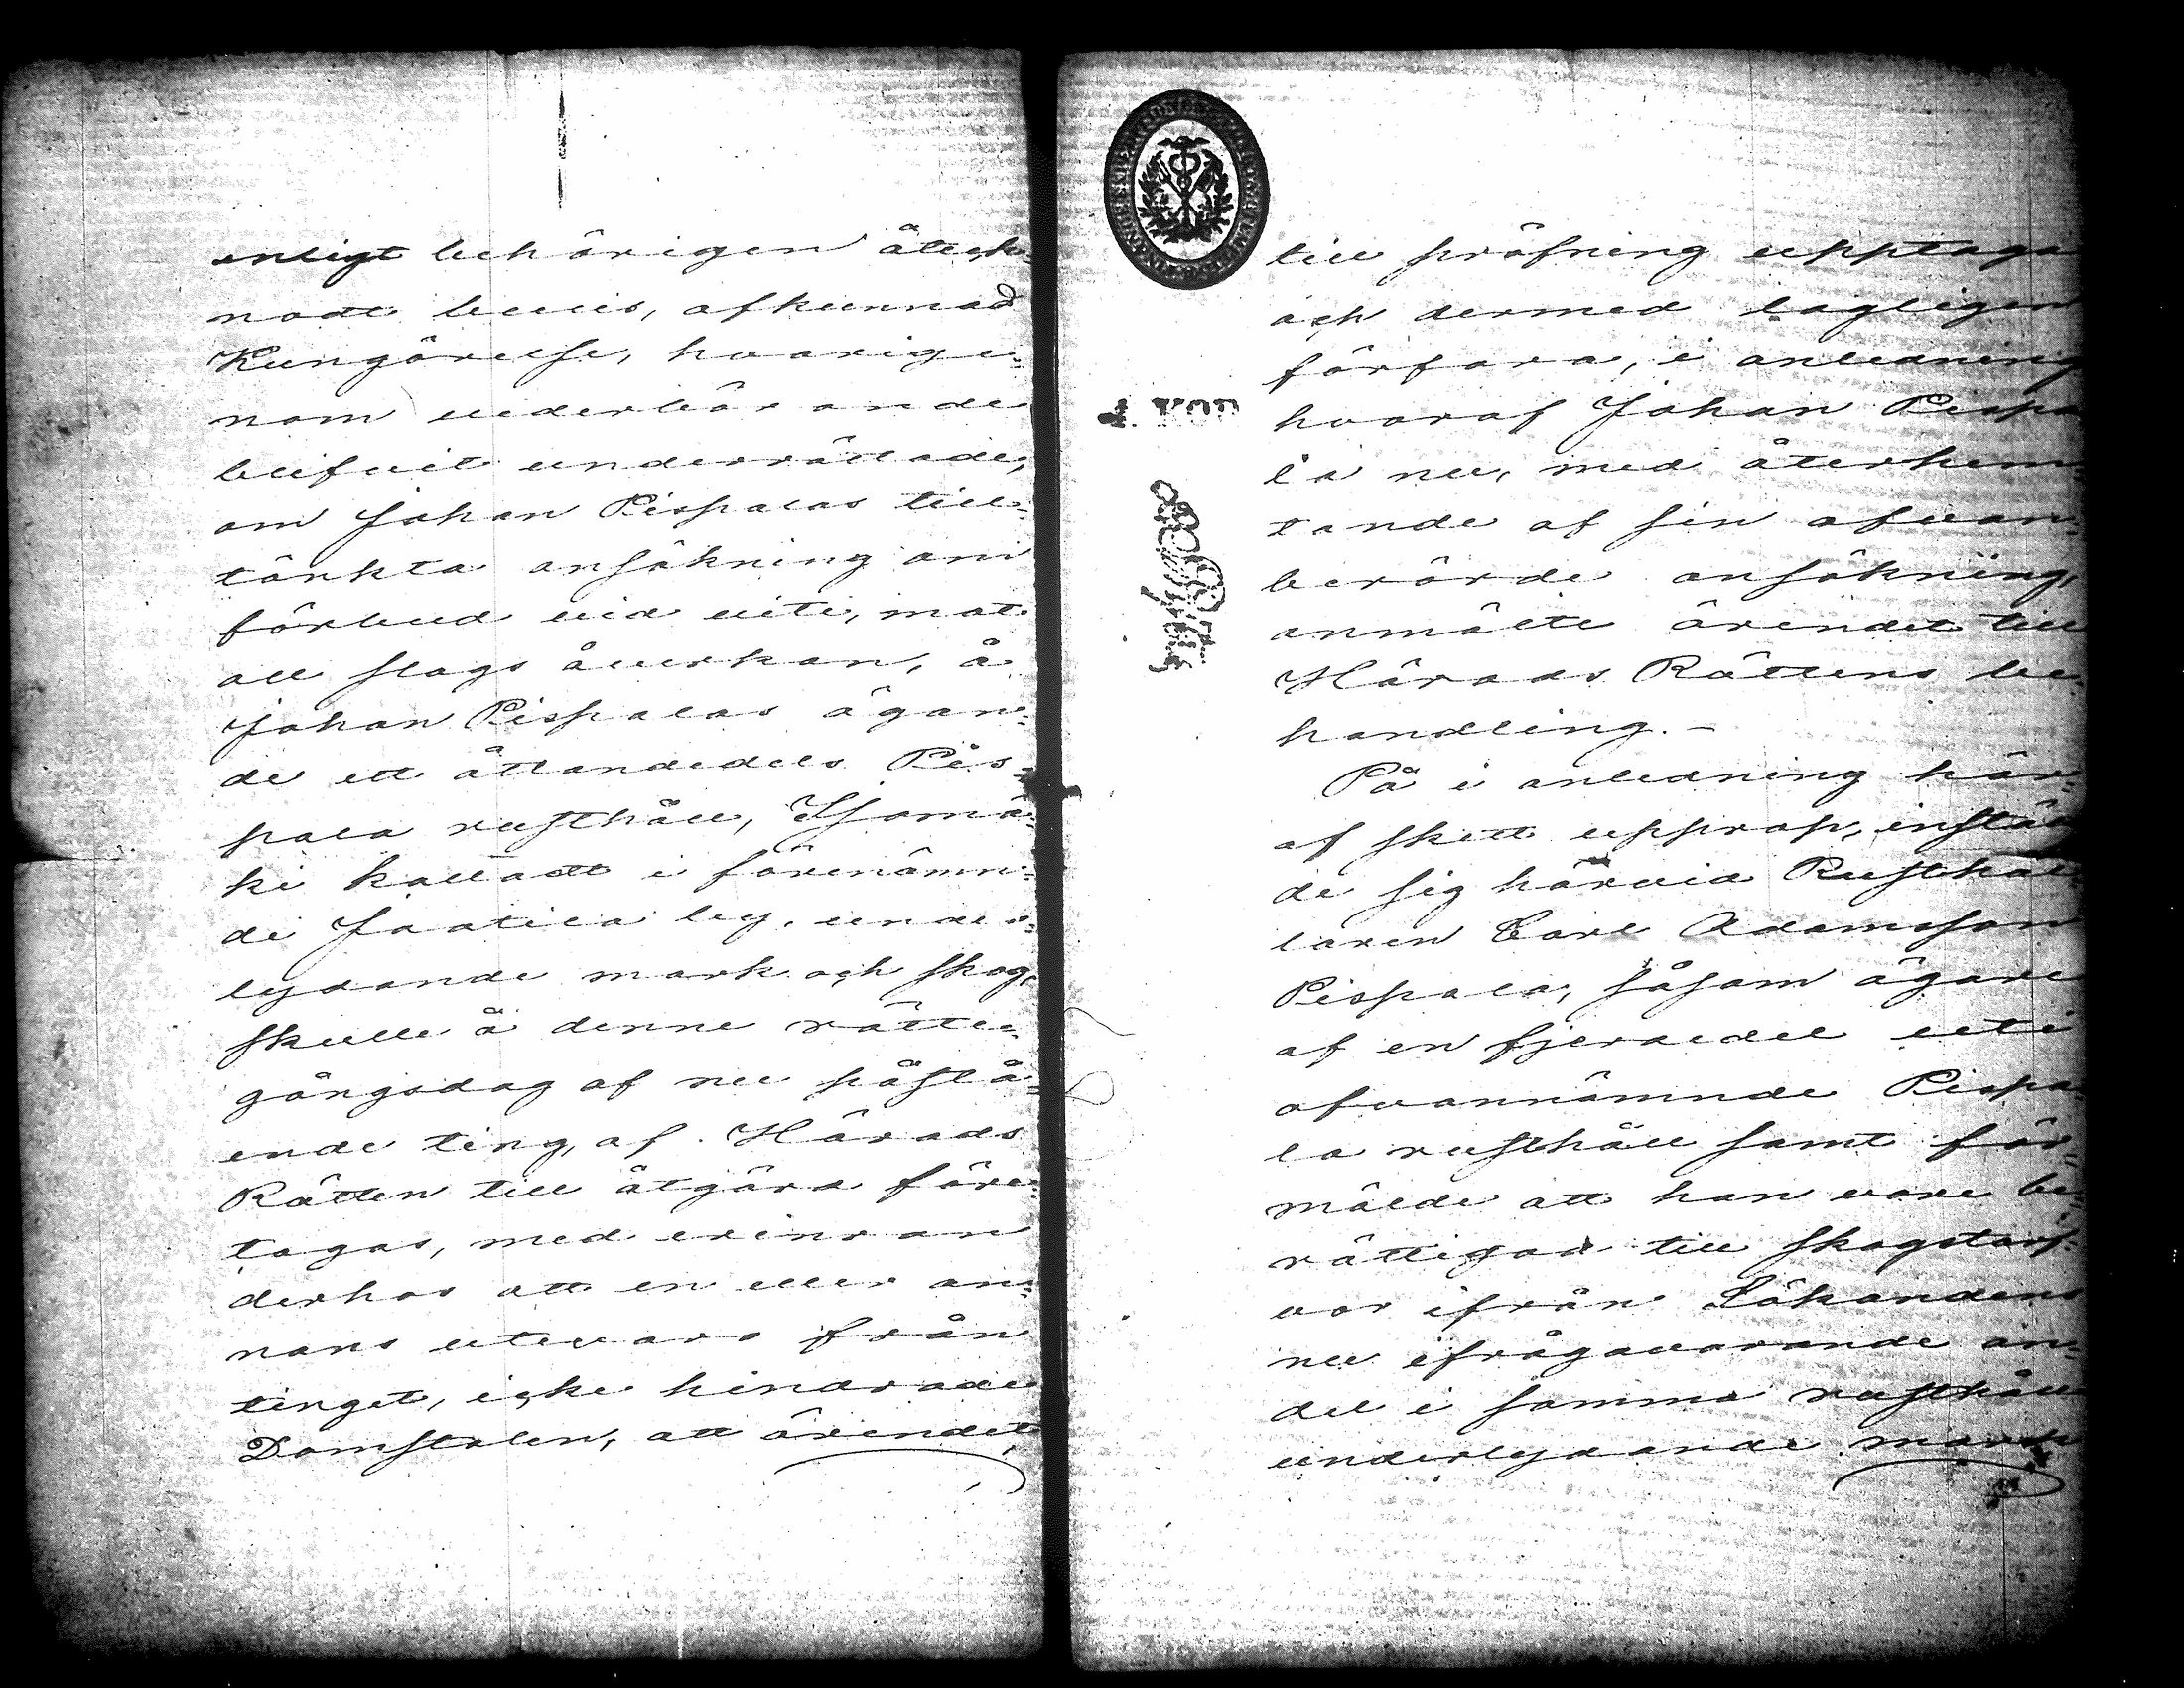 enligt behörigen åteck-
nadt bevis, afkunnad
Kungörelse, hvarige-
nom vederbörande
blifvit underrättade,
om Johan Pispalas till-
tänkta ansökning om
förbud vid vite, mot
all slags åverkan, å
Johan Pispalas ägan-
de ett åttandedels Pis-
pala rusthåll, Isomä-
ki kalladt i förenämn-
de Jaatila by, unde-
lydande mark och skog,
skulle å denne rätte-
gångsdag af nu påstå-
ende ting, af Härads
Rätten till åtgärd före-
tagas, med erinran
derhos att en eller an-
nans utevaro från
tinget, icke hindrade
Domstolen, att ärendet
till pröfning upptaga
och dermed lagligen
förfara, i anledning
hvaraf Johan Pispa
la nu, med återhem-
tande af sin ofvan-
berörde ansökning,
anmälte ärendet till
Härads Rättens be
handling. –
På i anledning här-
af skett upprop, instäl
de sig härvid Rusthål
laren Carl Adamsson
Pispala, såsom ägare
af en fjerdedel uti
ofvannämnde Pispa
la rusthåll samt för-
mälde att han vore be-
rättigad till skogstarf-
vor ifrån Sökandens
nu ifrågavarande an-
del i samma rusthåll
underlydande mark